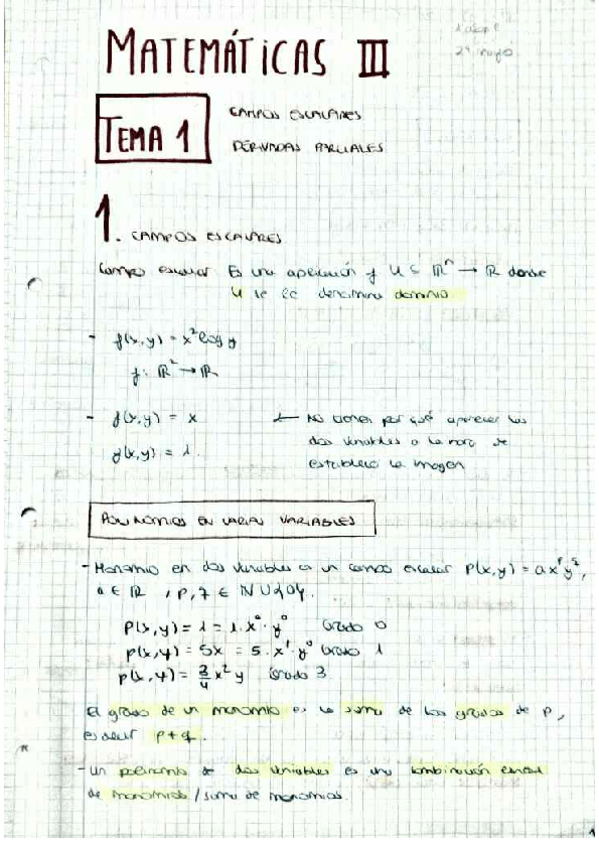 MATEMÁTICAS III
TEMA 1
CAMPOS ESCALARES
DERIVADAS PARCIALES
1. CAMPOS ESCALARES
Campo escalar Es una aplicación f U ⊆ ℝⁿ → ℝ donde
U se le denomina dominio
- f(x,y) = x² log y
f: ℝ² → ℝ
- f(x,y) = x ← No tienen por qué aparecer las
dos variables a la hora de
g(x,y) = 1. establecer la imagen
POLINOMIOS EN VARIAS VARIABLES
- Monomio en dos variables es un campo escalar P(x,y) = a x^p y^q,
a ∈ ℝ, p, q ∈ ℕ ∪ {0}.
P(x,y) = 1 = 1. x⁰ · y⁰ Grado 0
P(x,y) = 5x = 5 · x¹ · y⁰ Grado 1
p(x,y) = 3/4 x² y Grado 3
El grado de un monomio es la suma de los grados de P,
es decir p + q.
- Un polinomio de dos variables es una combinación lineal
de monomios / suma de monomios.
1